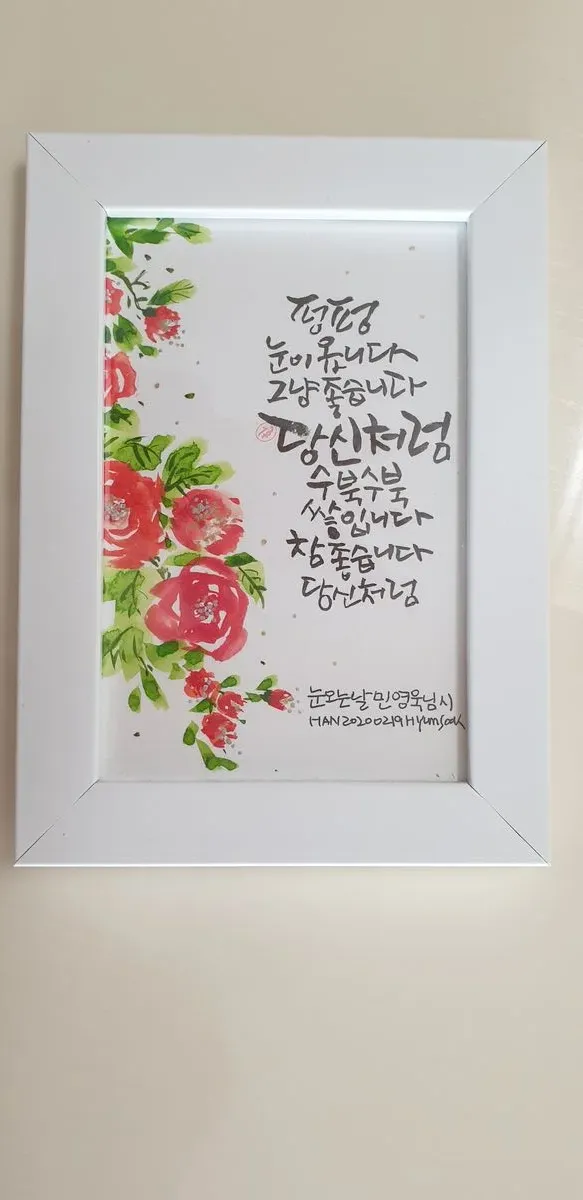 펑펑
눈이 옵니다
그냥 좋습니다
당신처럼
수북수북
쌓입니다
참 좋습니다
당신처럼
눈오는날 민영욱님 시
HAN 20200219 Hyunsook